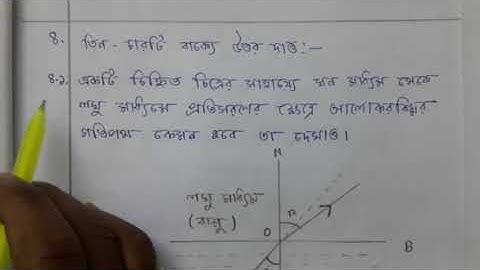 ৪. তিন-চারটি বাক্যে উত্তর দাও :—
৪.১. একটি চিহ্নিত চিত্রের সাহায্যে ঘন মাধ্যম থেকে
লঘু মাধ্যমে প্রতিসরণের ক্ষেত্রে আলোকরশ্মির
গতিপথ কেমন হবে তা দেখাও।
N
লঘু মাধ্যম
(বায়ু)
r
O
B